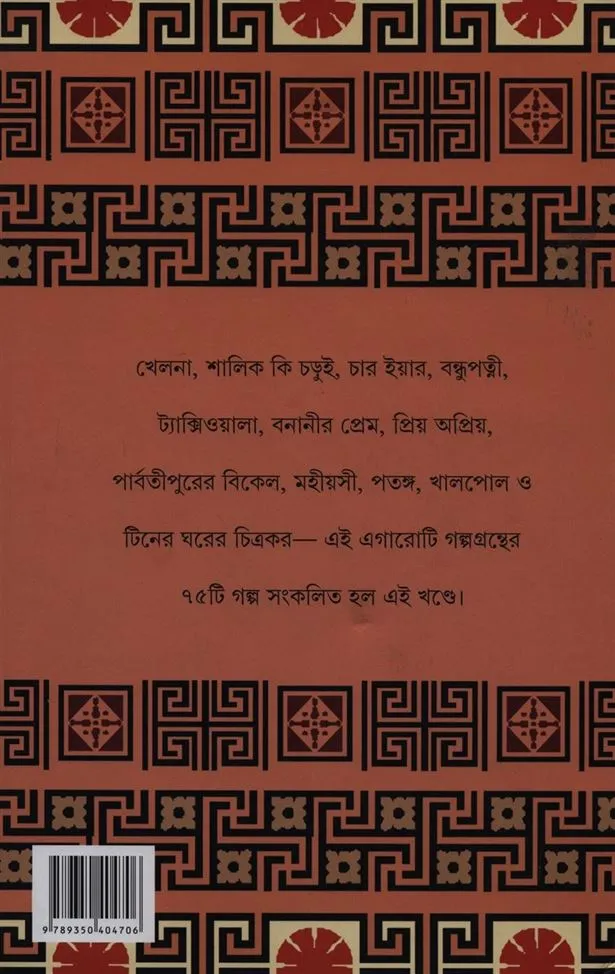 খেলনা, শালিক কি চড়ুই, চার ইয়ার, বন্ধুপত্নী,
ট্যাক্সিওয়ালা, বনানীর প্রেম, প্রিয় অপ্রিয়,
পার্বতীপুরের বিকেল, মহীয়সী, পতঙ্গ, খালপোল ও
টিনের ঘরের চিত্রকর— এই এগারোটি গল্পগ্রন্থের
৭৫টি গল্প সংকলিত হল এই খণ্ডে।
9 789350 404706